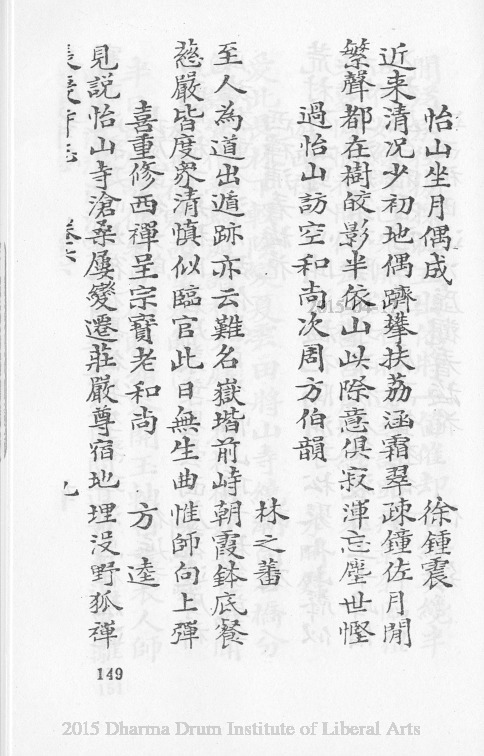 怡山坐月偶成 徐鍾震
近来清况少初地偶躋攀扶荔涵霜翠疎鐘佐月閒
繁聲都在樹皎影半依山此際意俱寂渾忘塵世慳
過怡山訪空和尚次周方伯韻
林之蕃
至人為道出遁跡亦云難名嶽堦前峙朝霞鉢底餐
慈嚴皆度衆清慎似臨官此日無生曲惟師向上彈
喜重修西禪呈宗寶老和尚 方逵
見説怡山寺滄桑屢變遷莊嚴尊宿地埋没野狐禪
長慶寺志 卷六 九
149
2015 Dharma Drum Institute of Liberal Arts